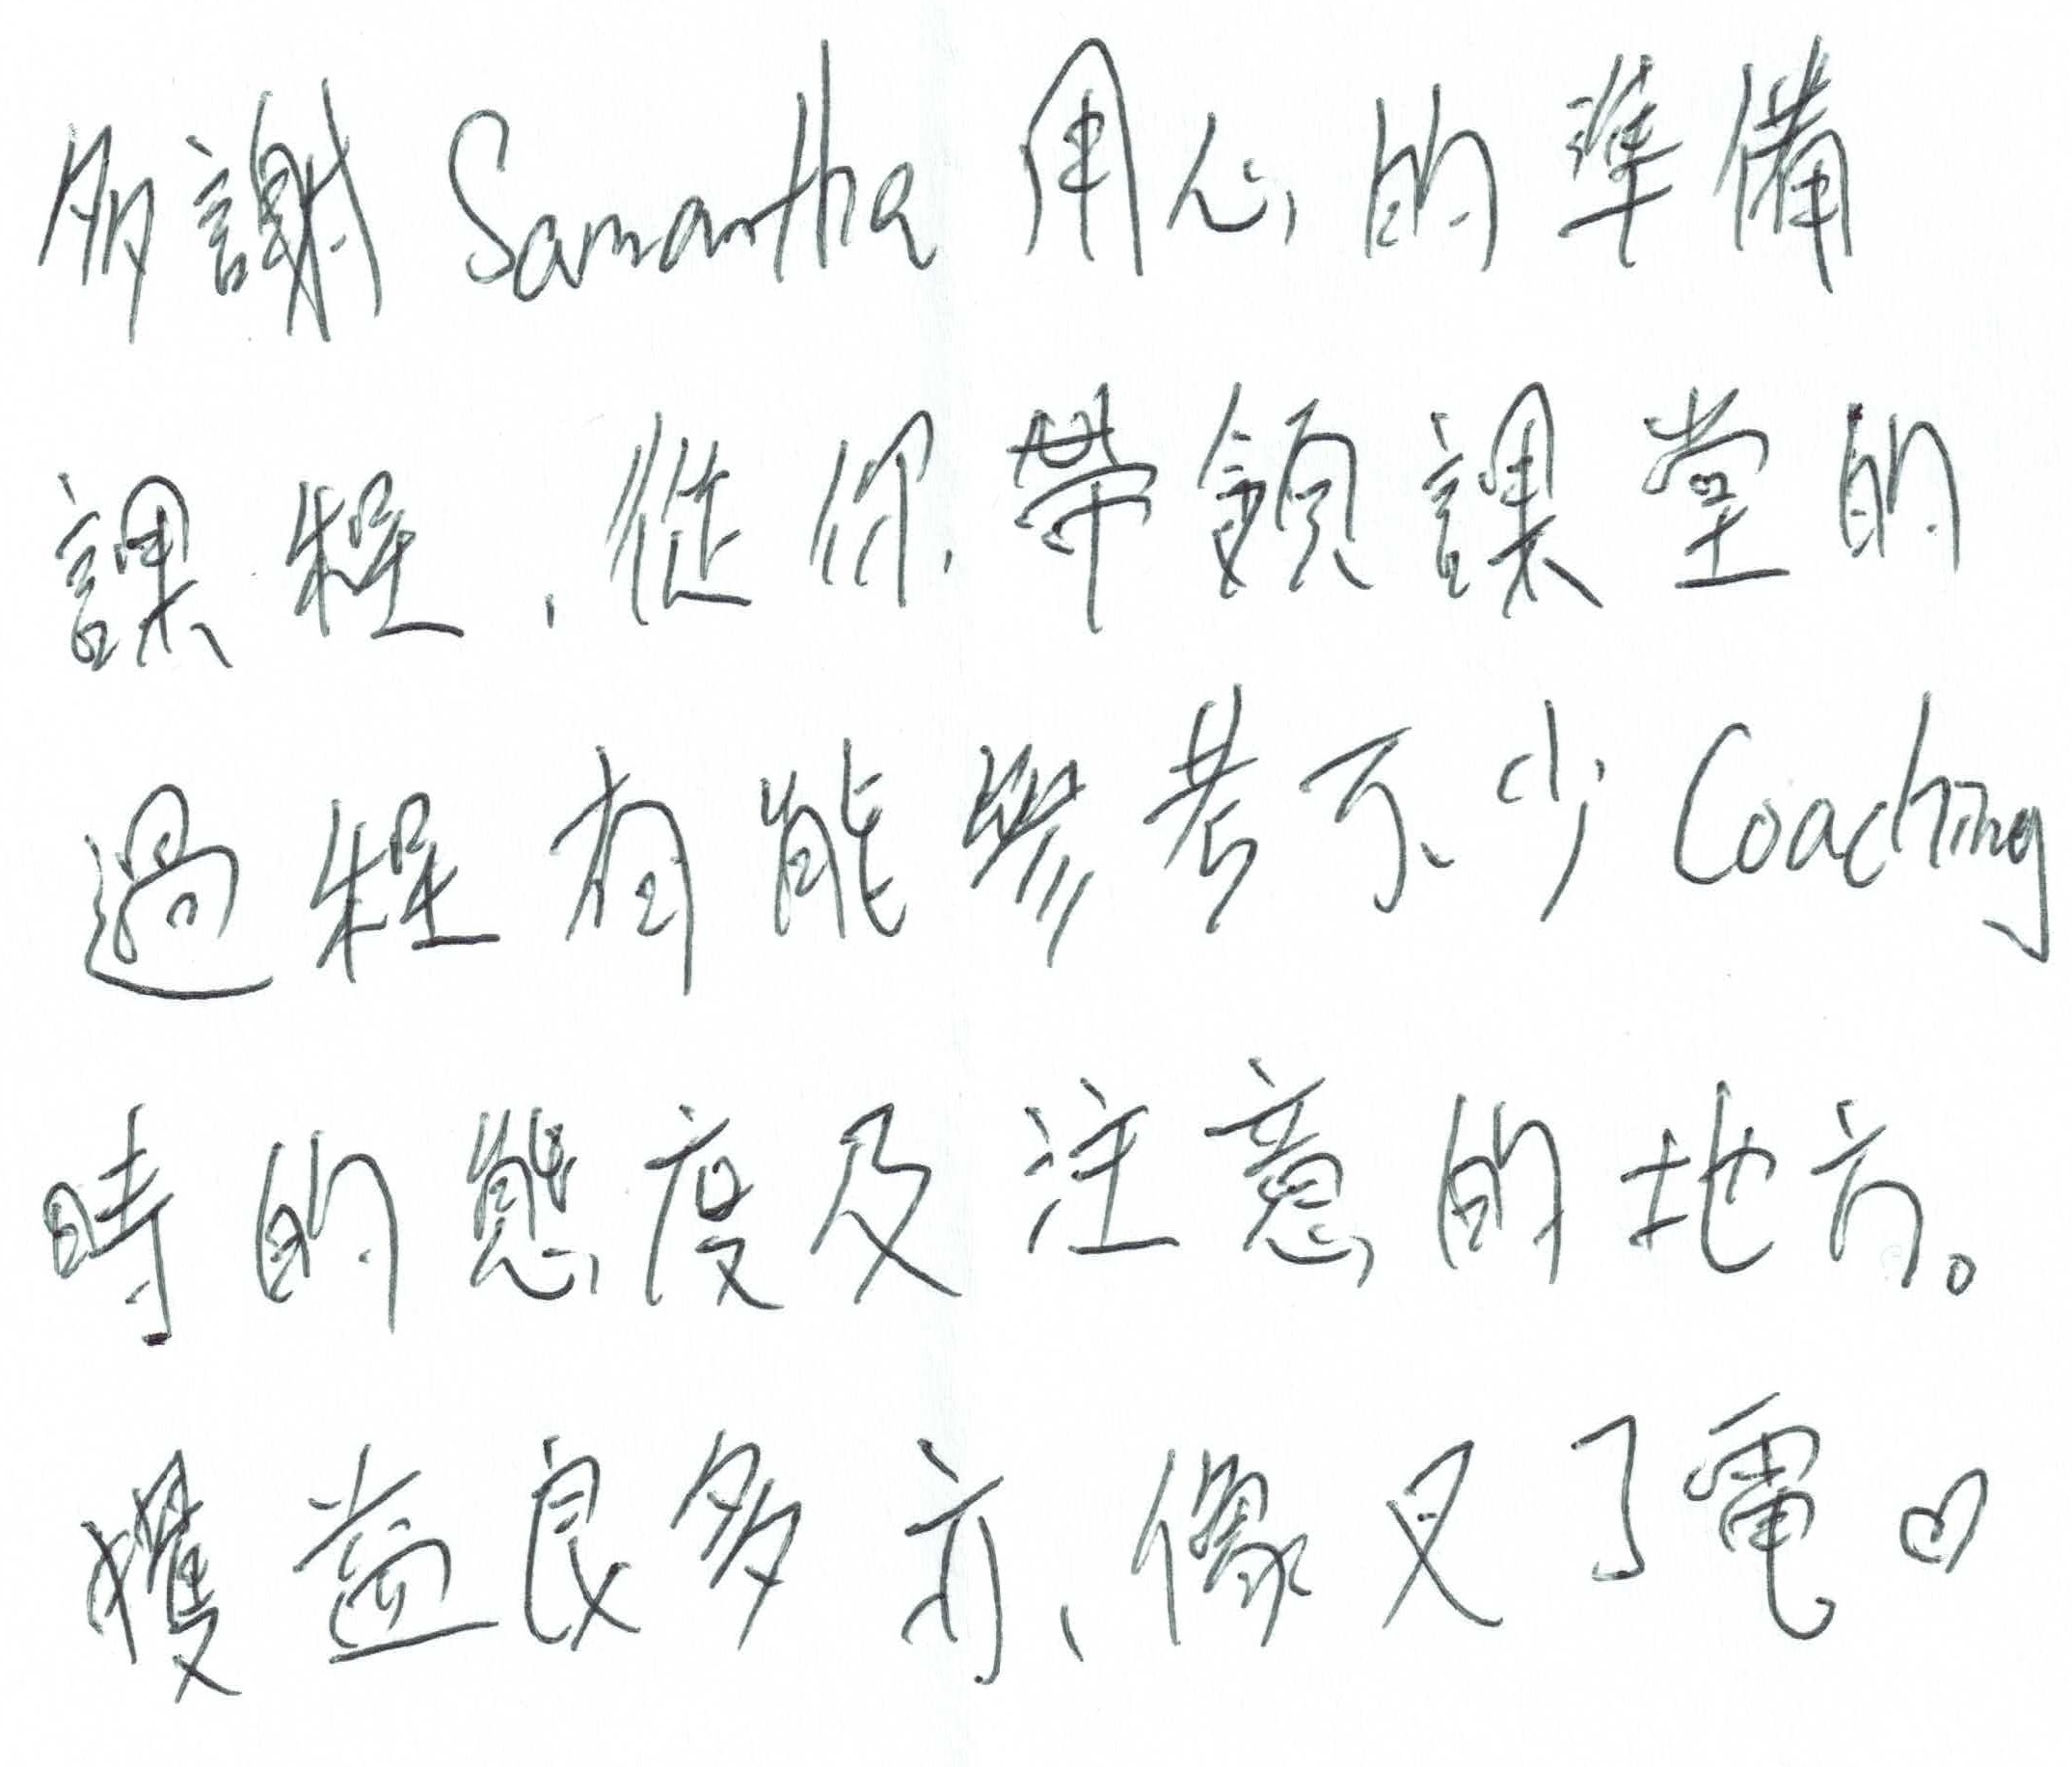 多謝 Samantha 用心的準備
課程，從你帶領課堂的
過程有能參考不少 Coaching
時的態度及注意的地方。
獲益良多亦像叉了電♡